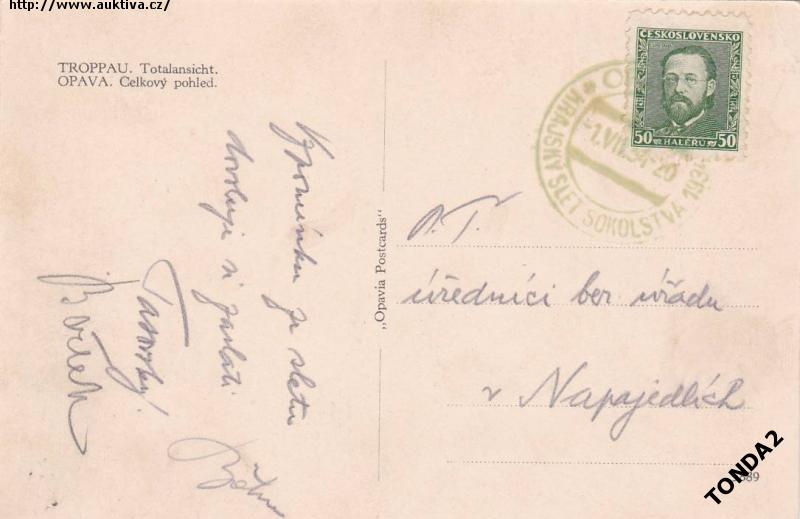 http://www.auktiva.cz/
TROPPAU. Totalansicht.
OPAVA. Celkový pohled.
Vzpomínku ze sletu
dovoluje si zaslati
„Opavia Postcards“
ČESKOSLOVENSKO
50 HALÉŘŮ 50
KRAJSKÝ SLET SOKOLSTVA 1934
1.VII.34-20
P. T.
úředníci ber. úřadu
v Napajedlích
TONDA2